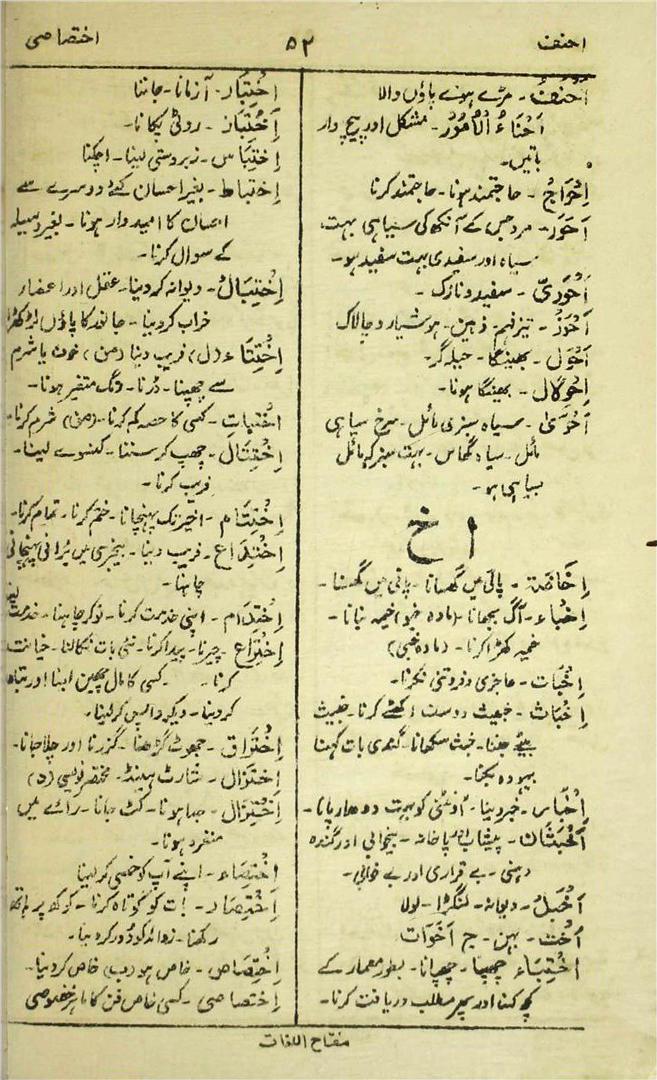 احنف
۵۲
اختصاصی
اَحْنَفُ۔ مڑے ہوئے پاؤں والا
اَحْنَاءُ الْاُمُوْرُ۔ مشکل اور پیچ دار
باتیں۔
اِحْوَاجٌ۔ حاجتمند ہونا۔ حاجتمند کرنا
اَحْوَر۔ مرد جس کے آنکھ کی سیاہی بہت
سیاہ اور سفیدی بہت سفید ہو۔
اَحْوَرِیّ۔ سفید و نازک۔
اَحْوَذُ۔ تیز فہم۔ ذہین۔ ہوشیار و چالاک
اَحْوَل۔ بھینگا۔ حیلہ گر۔
اِحْوِلَال۔ بھینگا ہونا۔
سیاہ سبزی مائل۔ سرخ سیاہی
مائل۔ سیاہ گھاس۔ بہت سبز کہ مائل
سیاہی ہو۔
ا خ
اِخَاضَۃ۔ پانی میں گھسانا۔ پانی میں گھسنا۔
اِخْبَاء۔ آگ بجھانا۔ (مادہ خبو) خیمہ بنانا۔
خیمہ کھڑا کرنا۔ (مادہ خبی)
اِخْبَات۔ عاجزی و فروتنی کرنا۔
اِخْبَاث۔ خبیث دوست اکٹھے کرنا۔ خبیث
بیٹے جننا۔ خبث سکھانا۔ گندی بات کہنا
بیہودہ بکنا۔
خبر دینا۔ اونٹنی کو بہت دودھار پانا۔
اَخْبَثَان۔ پیشاب اور پاخانہ۔ بیخوابی اور گندہ
دہنی۔ بے قراری اور بے خوابی۔
اَخْبَلُ۔ دیوانہ۔ لنگڑا۔ لولا
اُخْت۔ بہن۔ ج اَخَوَات
اِخْتِبَاء چھپنا۔ چھپانا۔ بطور معمار کے
کچھ کہنا اور پھر مطلب دریافت کرنا۔
اِخْتِبَار۔ آزمانا۔ جاننا
اِخْتِبَاز۔ روٹی پکانا۔
اِخْتِبَاس۔ زبردستی لینا۔ اچکنا
اِخْتِبَاط۔ بغیر احسان کئے دوسرے سے
احسان کا امیدوار ہونا۔ بغیر وسیلہ
کے سوال کرنا۔
اِخْتِبَالُ۔ دیوانہ کر دینا۔ عقل اور اعضاء
خراب کر دینا۔ جانور کا پاؤں لڑکھڑا
اِخْتِتَاء (ل) فریب دینا (من) خوف یا شرم
سے چھپنا۔ ڈرنا۔ رنگ متغیر ہونا۔
کسی کا حصہ کم کرنا۔ (من) شرم کرنا۔
اِخْتِتَال۔ چھپ کر سننا۔ کنسوے لینا۔
فریب کرنا۔
اِخْتِتَام۔ اخیر تک پہنچانا۔ ختم کرنا۔ تمام کرنا۔
اِخْتِدَاع۔ فریب دینا۔ بیخبری میں برائی پہنچانی
چاہنا۔
اِخْتِدَام۔ اپنی خدمت کرنا۔ نوکر چاہنا۔ خدمت
اِخْتِرَاع۔ چیرنا۔ پیدا کرنا۔ نئی بات نکالنا۔ خیانت
کرنا۔ کسی کا مال چھین لینا اور تباہ
کر دینا۔ دیکر واپس کر لینا۔
اِخْتِرَاق۔ جھوٹ گڑھنا۔ گزرنا اور چلا جانا۔
اِخْتِزَال۔ شارٹ ہینڈ۔ مختصر نویسی (د)
اِخْتِزَال۔ جدا ہونا۔ کٹ جانا۔ رائے میں
منفرد ہونا۔
اِخْتِصَاء۔ اپنے آپ کو خصی کر لینا
اِخْتِصَار۔ بات کو کوتاہ کرنا۔ کوکھ پر ہاتھ
رکھنا۔ زوائد کو دور کر دینا۔
اِخْتِصَاص۔ خاص ہو (ب) خاص کر دینا۔
اِختصاصی۔ کسی خاص فن کا ماہر خصوصی
مفتاح اللغات